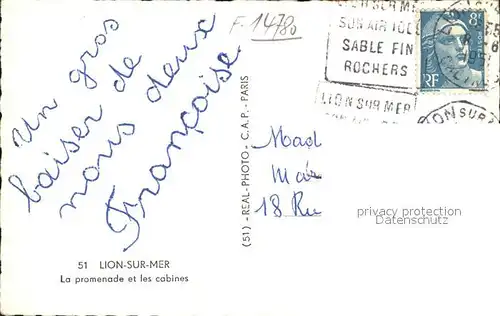 F-1478
LION SUR MER
SON AIR IODE
SABLE FIN
ROCHERS
LION SUR MER
8F
RF
Un gros
baiser de
nous deux
Françoise
(51) - REAL-PHOTO - C.A.P. - PARIS
Mad
Mar
18 Ru
privacy protection
(VAMPRODUCTION)
51 LION-SUR-MER
La promenade et les cabines